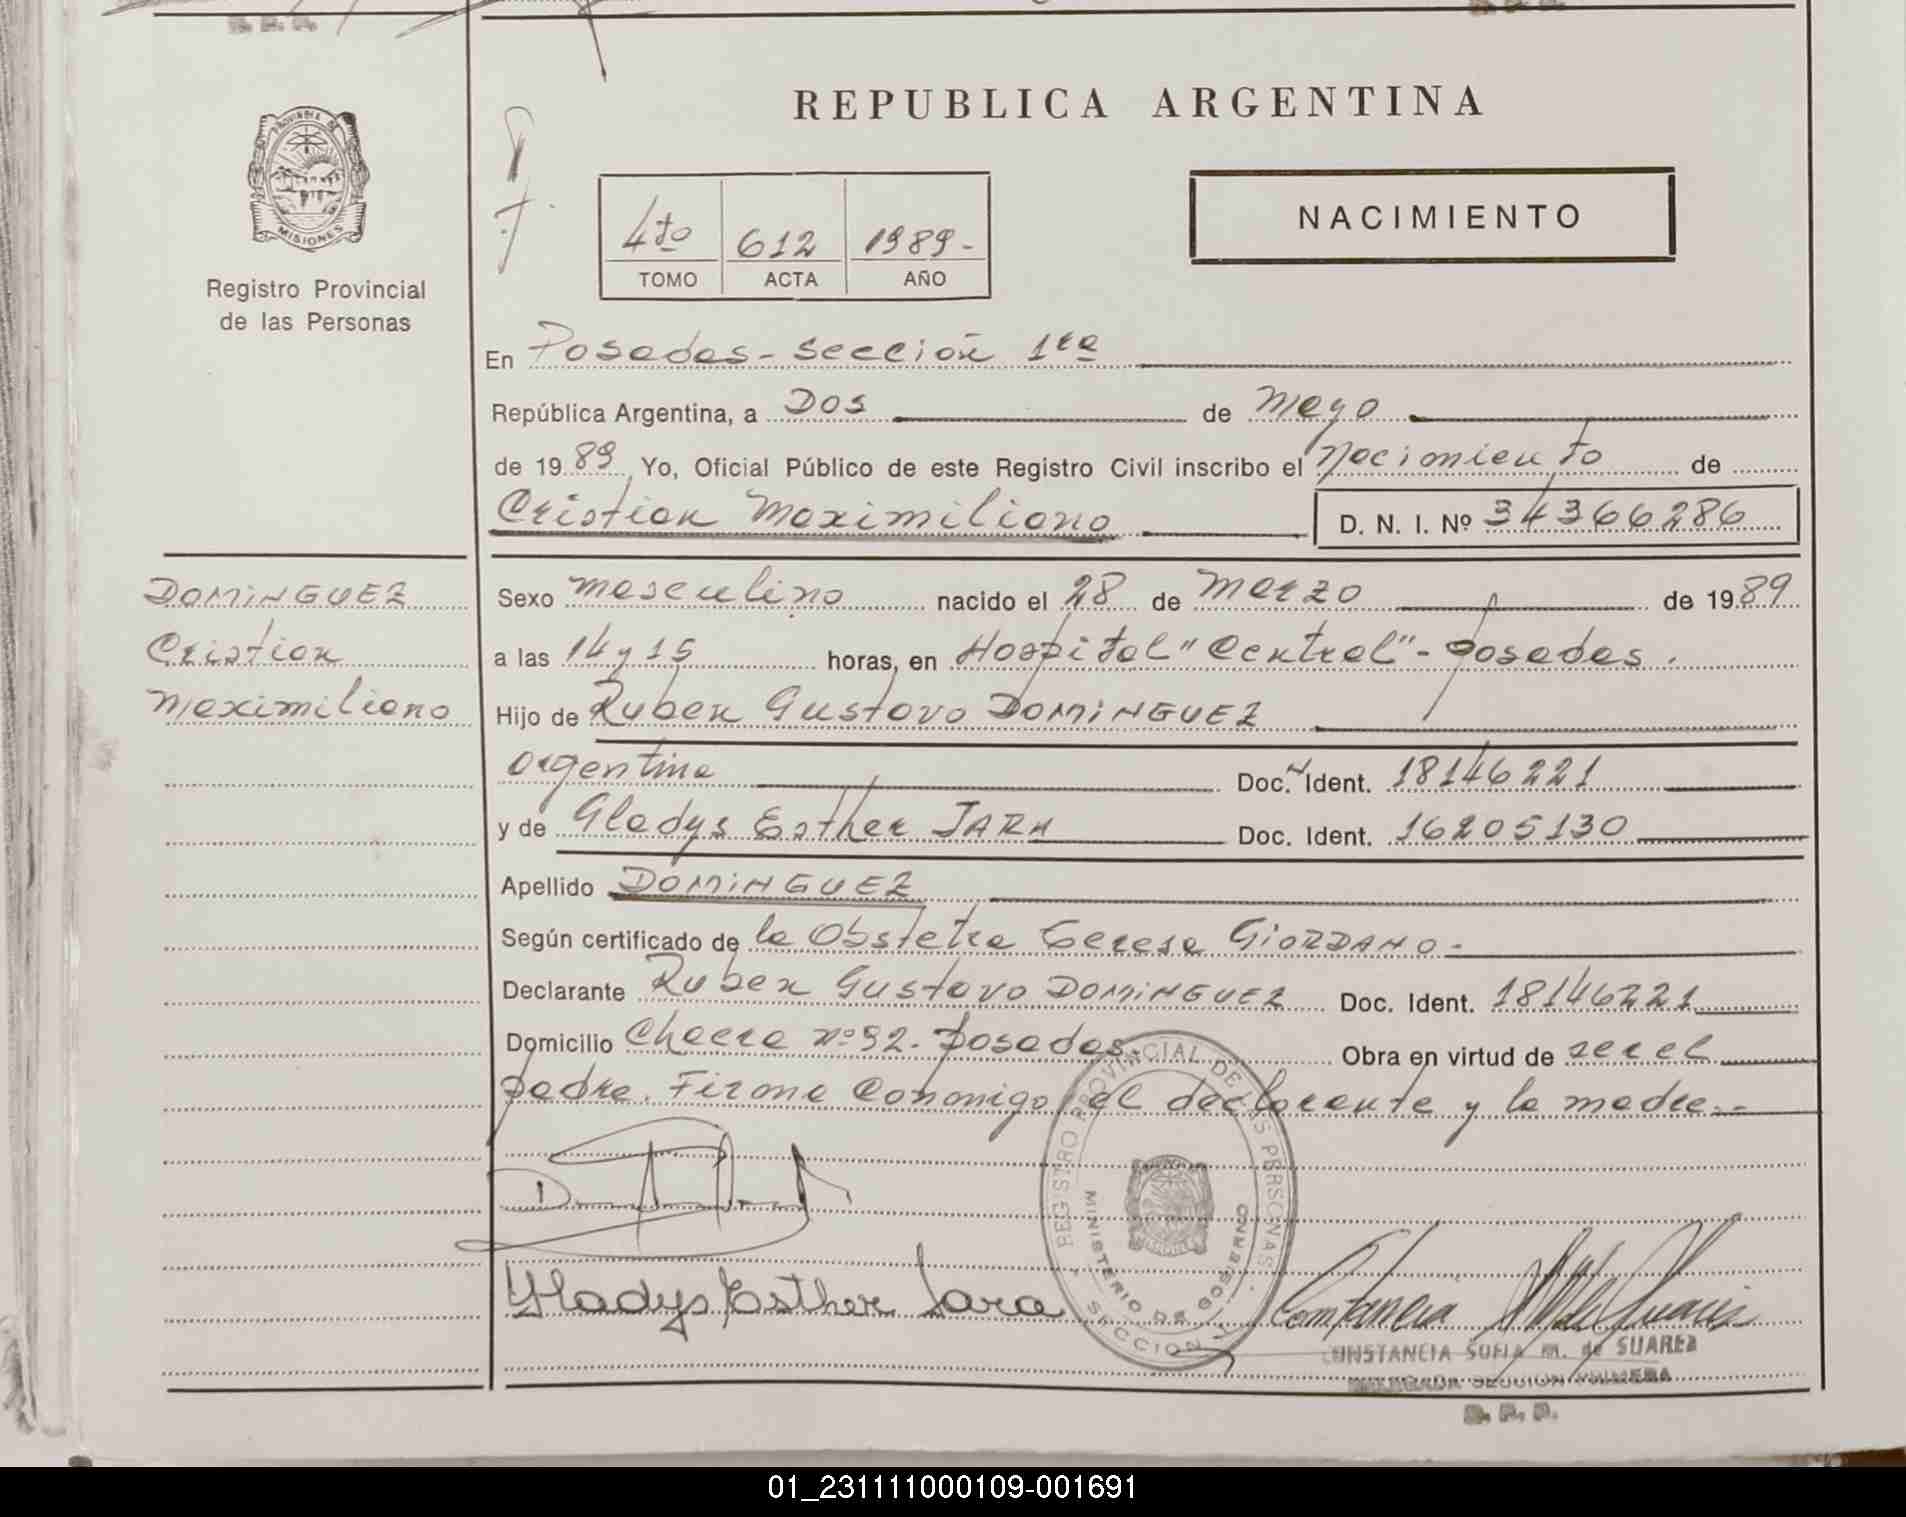 REPUBLICA ARGENTINA
PROVINCIA DE
MISIONES
Registro Provincial
de las Personas
4to 612 1989-
TOMO ACTA AÑO
NACIMIENTO
En Posadas - Sección 1ra
República Argentina, a DOS de Mayo
de 1989 Yo, Oficial Público de este Registro Civil inscribo el Nacimiento de
Cristian Maximiliano D. N. I. Nº 34366286
DOMINGUEZ
Cristian
Maximiliano
Sexo masculino nacido el 28 de Marzo de 1989
a las 14 y 15 horas, en Hospital "Central" - Posadas.
Hijo de Ruben Gustavo DOMINGUEZ
argentina Doc. Ident. 18146221
y de Gladys Esther JARA Doc. Ident. 16205130
Apellido DOMINGUEZ
Según certificado de la Obstetra Teresa GIORDANO.-
Declarante Ruben Gustavo DOMINGUEZ Doc. Ident. 18146221
Domicilio Chacra nº 92. Posadas. Obra en virtud de ser el
padre. Firma conmigo, el declarante y la madre.-
REGISTRO PROVINCIAL DE LAS PERSONAS
MINISTERIO DE GOBIERNO
SECCION
Gladys Esther Jara
Constancia
CONSTANCIA SOFIA M. de SUAREZ
DELEGADA SECCION PRIMERA
R. P. P.
01_231111000109-001691